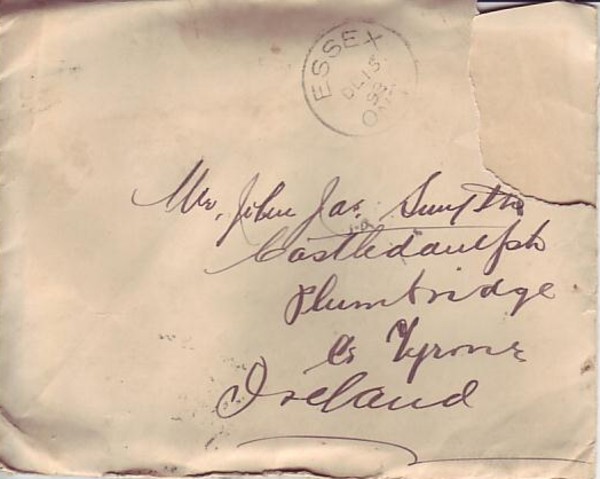 ESSEX
DE 15
92
ONT
Mr. John Jas. Smyth
Castledamph
Plumbridge
Co Tyrone
Ireland